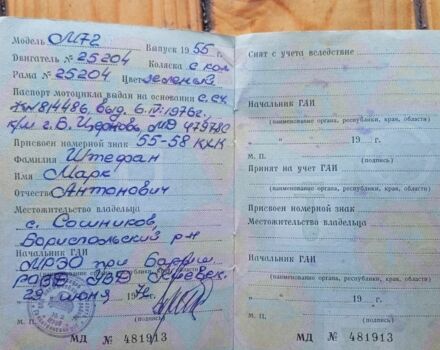 Модель М72 Выпуск 1955 г.
Двигатель № 25204 Коляска с кол
Рама № 25204 Цвет зеленый
Паспорт мотоцикла выдан на основании с.сч.
814486, выд. 6.IV-1976г.
к/м г. МД 47978С
Присвоен номерной знак 55-58 КХК
Фамилия Штефан
Имя Марк
Отчество Антонович
Местожительство владельца
с. Сошников,
Бориспольский р-н
Начальник ГАИ
МРЭО при
УВД
29 июня
М. П. (подпись)
МД № 481913
Снят с учета вследствие
Начальник ГАИ
(наименование органа, республики, края, области)
" " 19 г.
М. П. (подпись)
Принят на учет ГАИ
(наименование органа, республики, края, области)
Присвоен номерной знак
Местожительство владельца
Начальник ГАИ
(наименование органа, республики, края, области)
" " 19 г.
М. П. (подпись)
МД № 481913